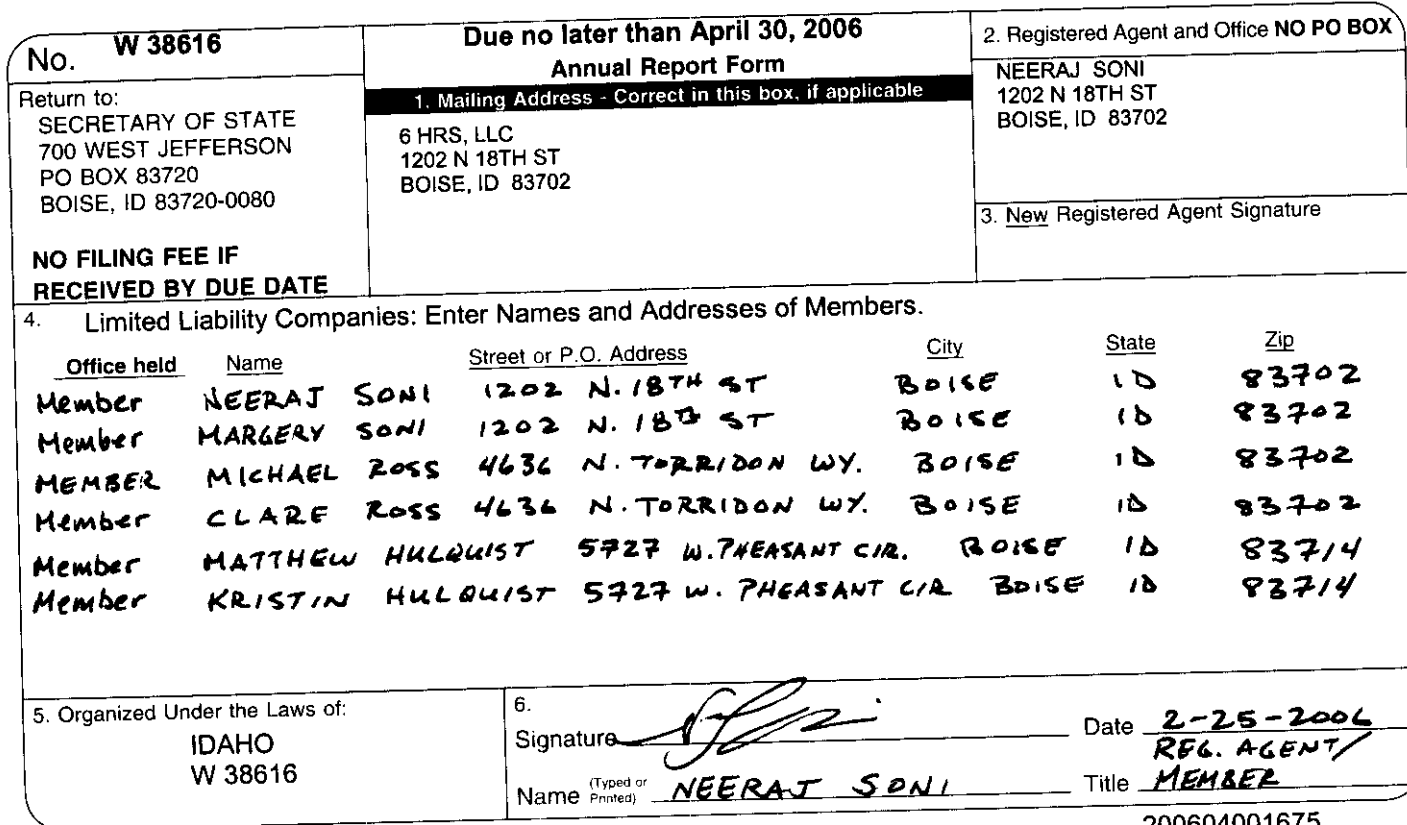 No. W 38616
Return to:
SECRETARY OF STATE
700 WEST JEFFERSON
PO BOX 83720
BOISE, ID 83720-0080
NO FILING FEE IF
RECEIVED BY DUE DATE
Due no later than April 30, 2006
Annual Report Form
1. Mailing Address - Correct in this box, if applicable
6 HRS, LLC
1202 N 18TH ST
BOISE, ID 83702
2. Registered Agent and Office NO PO BOX
NEERAJ SONI
1202 N 18TH ST
BOISE, ID 83702
3. New Registered Agent Signature
4. Limited Liability Companies: Enter Names and Addresses of Members.
Office held Name Street or P.O. Address City State Zip
Member NEERAJ SONI 1202 N. 18TH ST BOISE ID 83702
Member MARGERY SONI 1202 N. 18TH ST BOISE ID 83702
MEMBER MICHAEL ROSS 4636 N. TORRIDON WY. BOISE ID 83702
Member CLARE ROSS 4636 N. TORRIDON WY. BOISE ID 83702
Member MATTHEW HULQUIST 5727 W. PHEASANT CIR. BOISE ID 83714
Member KRISTIN HULQUIST 5727 W. PHEASANT CIR BOISE ID 83714
5. Organized Under the Laws of:
IDAHO
W 38616
6.
Signature
Date 2-25-2006
Name (Typed or Printed) NEERAJ SONI
REG. AGENT/
Title MEMBER
200604001675